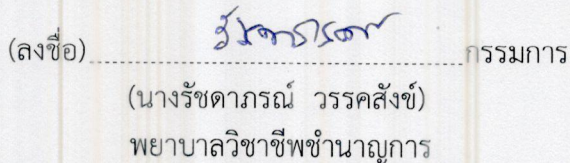 (ลงชื่อ)........................................................กรรมการ
(นางรัชดาภรณ์ วรรคสังข์)
พยาบาลวิชาชีพชำนาญการ